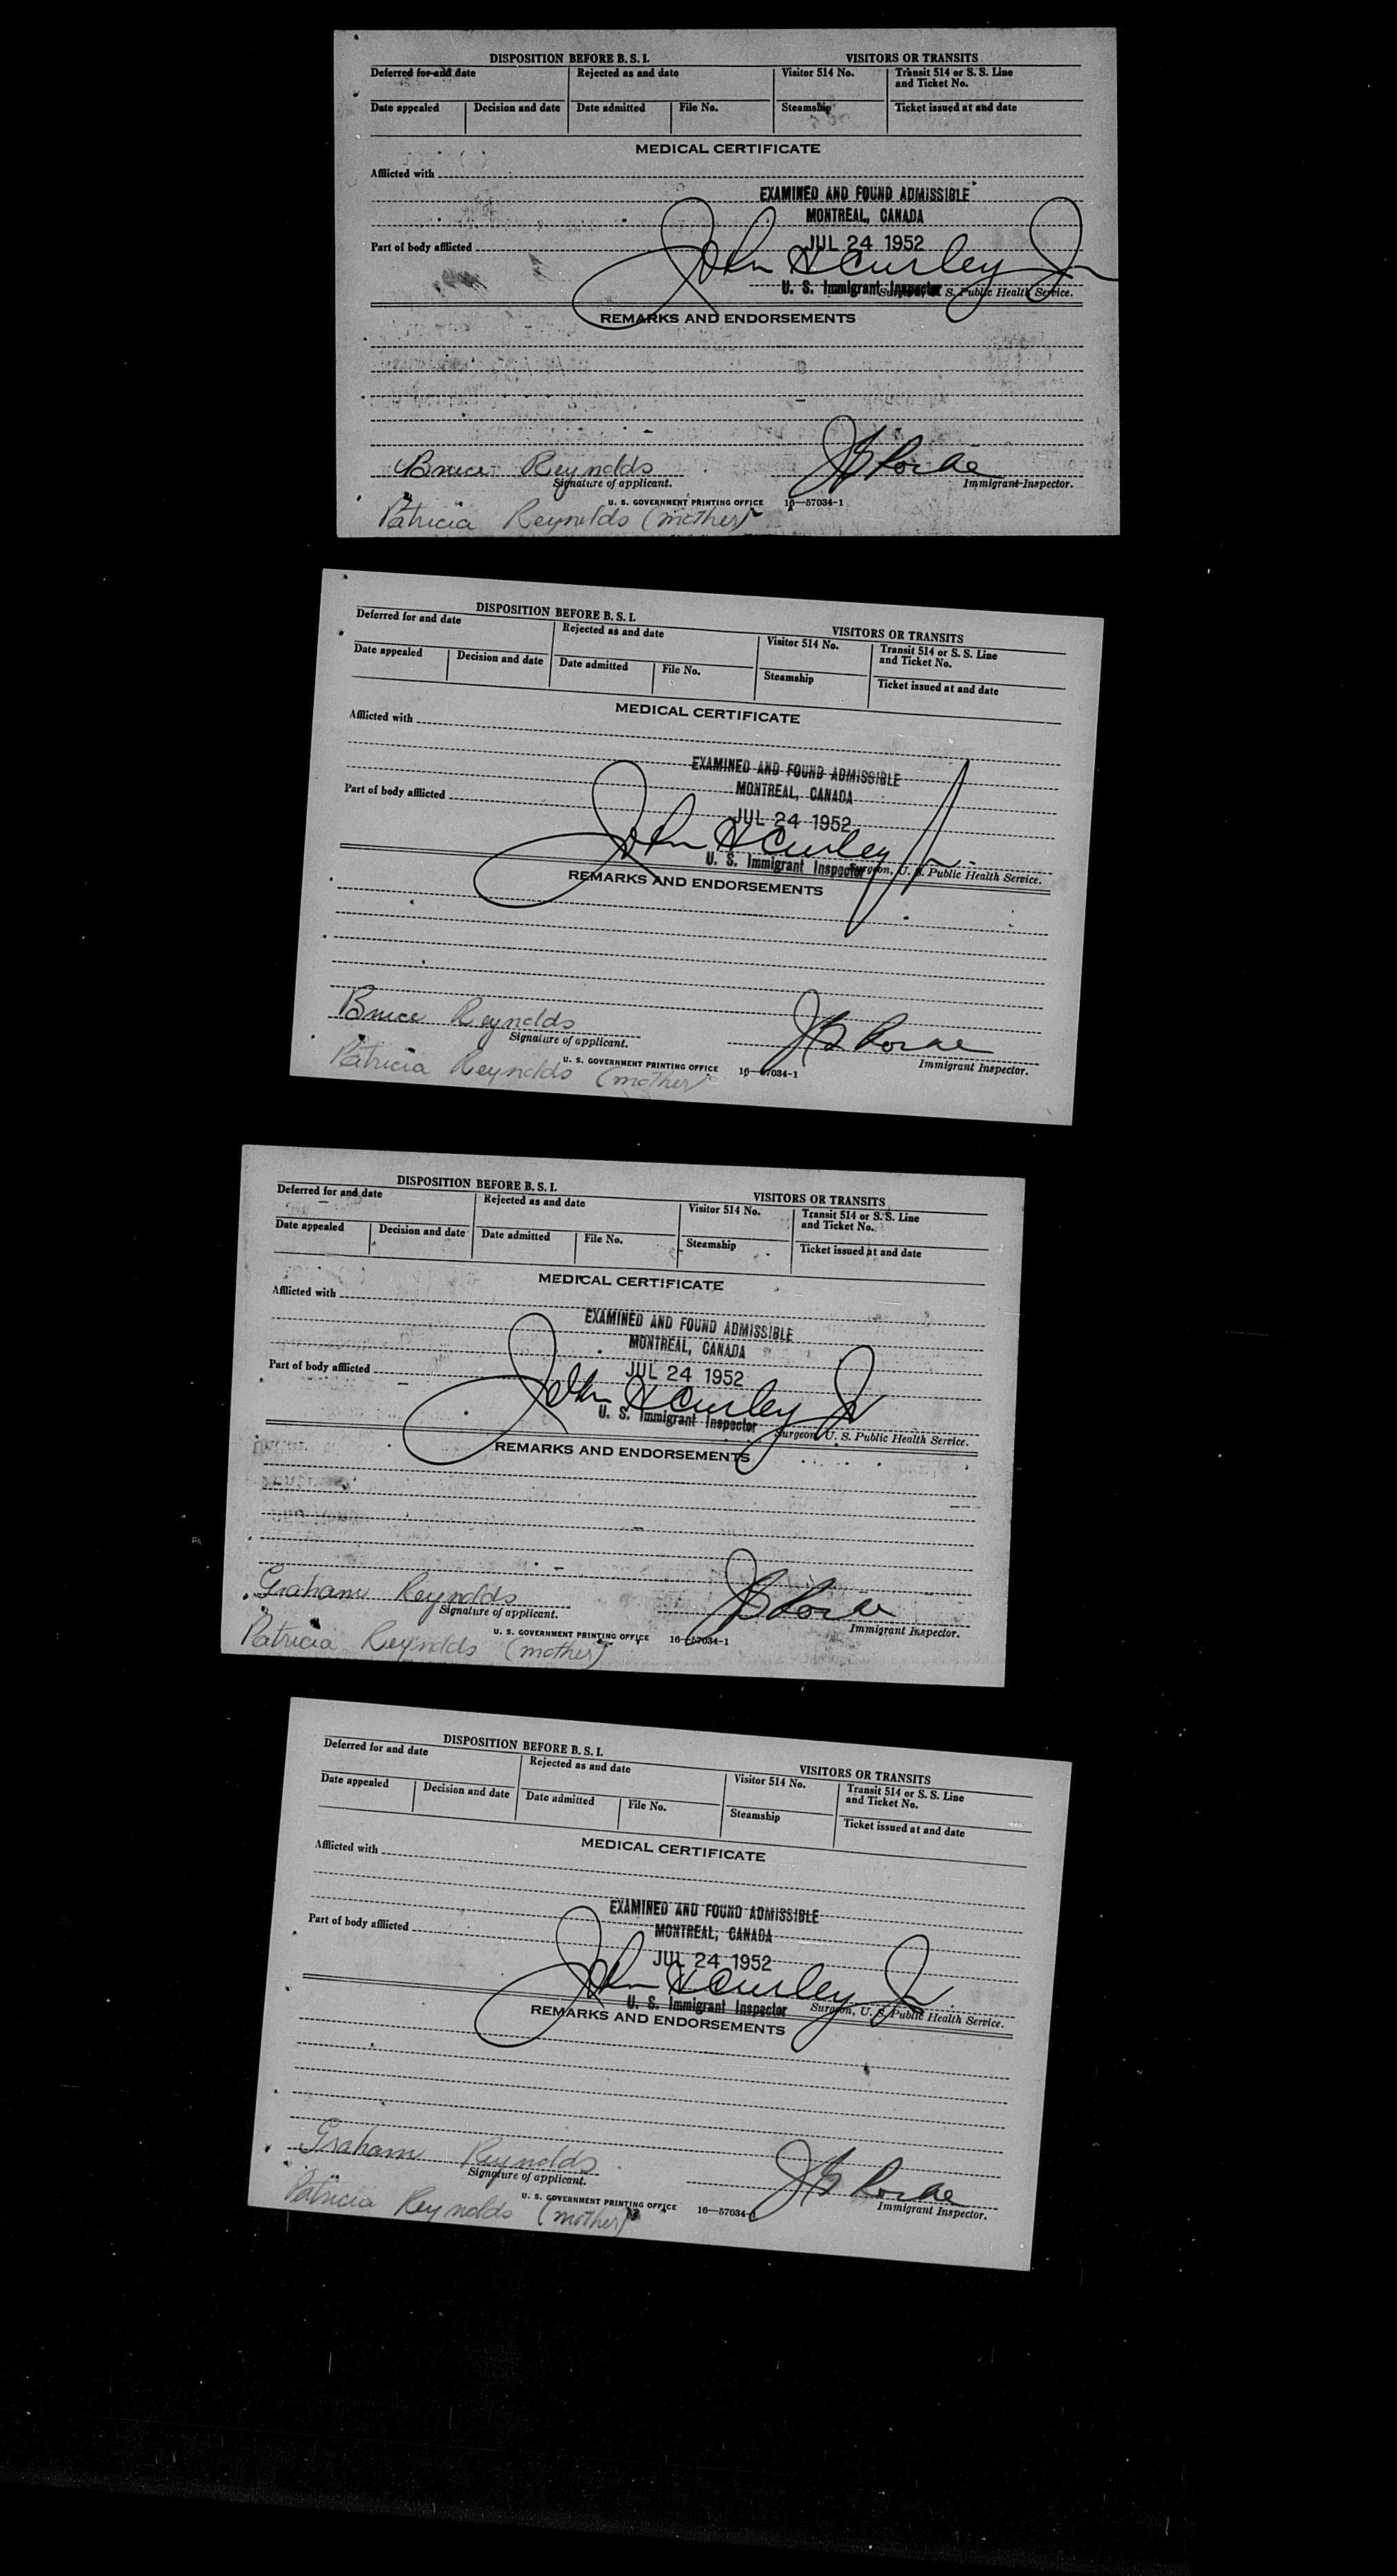 DISPOSITION BEFORE B. S. I. VISITORS OR TRANSITS
Deferred for and date Rejected as and date Visitor 514 No. Transit 514 or S. S. Line and Ticket No.
Date appealed Decision and date Date admitted File No. Steamship Ticket issued at and date
MEDICAL CERTIFICATE
Afflicted with
EXAMINED AND FOUND ADMISSIBLE
MONTREAL, CANADA
Part of body afflicted JUL 24 1952
John H Curley Jr
U. S. Immigrant Inspector Surgeon, U. S. Public Health Service.
REMARKS AND ENDORSEMENTS
Bruce Reynolds
Signature of applicant. Immigrant Inspector.
U. S. GOVERNMENT PRINTING OFFICE 16—57034-1
Patricia Reynolds (mother)
DISPOSITION BEFORE B. S. I. VISITORS OR TRANSITS
Deferred for and date Rejected as and date Visitor 514 No. Transit 514 or S. S. Line and Ticket No.
Date appealed Decision and date Date admitted File No. Steamship Ticket issued at and date
MEDICAL CERTIFICATE
Afflicted with
EXAMINED AND FOUND ADMISSIBLE
MONTREAL, CANADA
Part of body afflicted JUL 24 1952
John H Curley Jr.
U. S. Immigrant Inspector Surgeon, U. S. Public Health Service.
REMARKS AND ENDORSEMENTS
Bruce Reynolds
Signature of applicant. Immigrant Inspector.
U. S. GOVERNMENT PRINTING OFFICE 16—57034-1
Patricia Reynolds (mother)
DISPOSITION BEFORE B. S. I. VISITORS OR TRANSITS
Deferred for and date Rejected as and date Visitor 514 No. Transit 514 or S. S. Line and Ticket No.
Date appealed Decision and date Date admitted File No. Steamship Ticket issued at and date
MEDICAL CERTIFICATE
Afflicted with
EXAMINED AND FOUND ADMISSIBLE
MONTREAL, CANADA
Part of body afflicted JUL 24 1952
John H Curley Jr
U. S. Immigrant Inspector Surgeon, U. S. Public Health Service.
REMARKS AND ENDORSEMENTS
Graham Reynolds
Signature of applicant. Immigrant Inspector.
U. S. GOVERNMENT PRINTING OFFICE 16—57034-1
Patricia Reynolds (mother)
DISPOSITION BEFORE B. S. I. VISITORS OR TRANSITS
Deferred for and date Rejected as and date Visitor 514 No. Transit 514 or S. S. Line and Ticket No.
Date appealed Decision and date Date admitted File No. Steamship Ticket issued at and date
MEDICAL CERTIFICATE
Afflicted with
EXAMINED AND FOUND ADMISSIBLE
MONTREAL, CANADA
Part of body afflicted JUL 24 1952
John H Curley Jr
U. S. Immigrant Inspector Surgeon, U. S. Public Health Service.
REMARKS AND ENDORSEMENTS
Graham Reynolds
Signature of applicant. Immigrant Inspector.
U. S. GOVERNMENT PRINTING OFFICE 16—57034-1
Patricia Reynolds (mother)